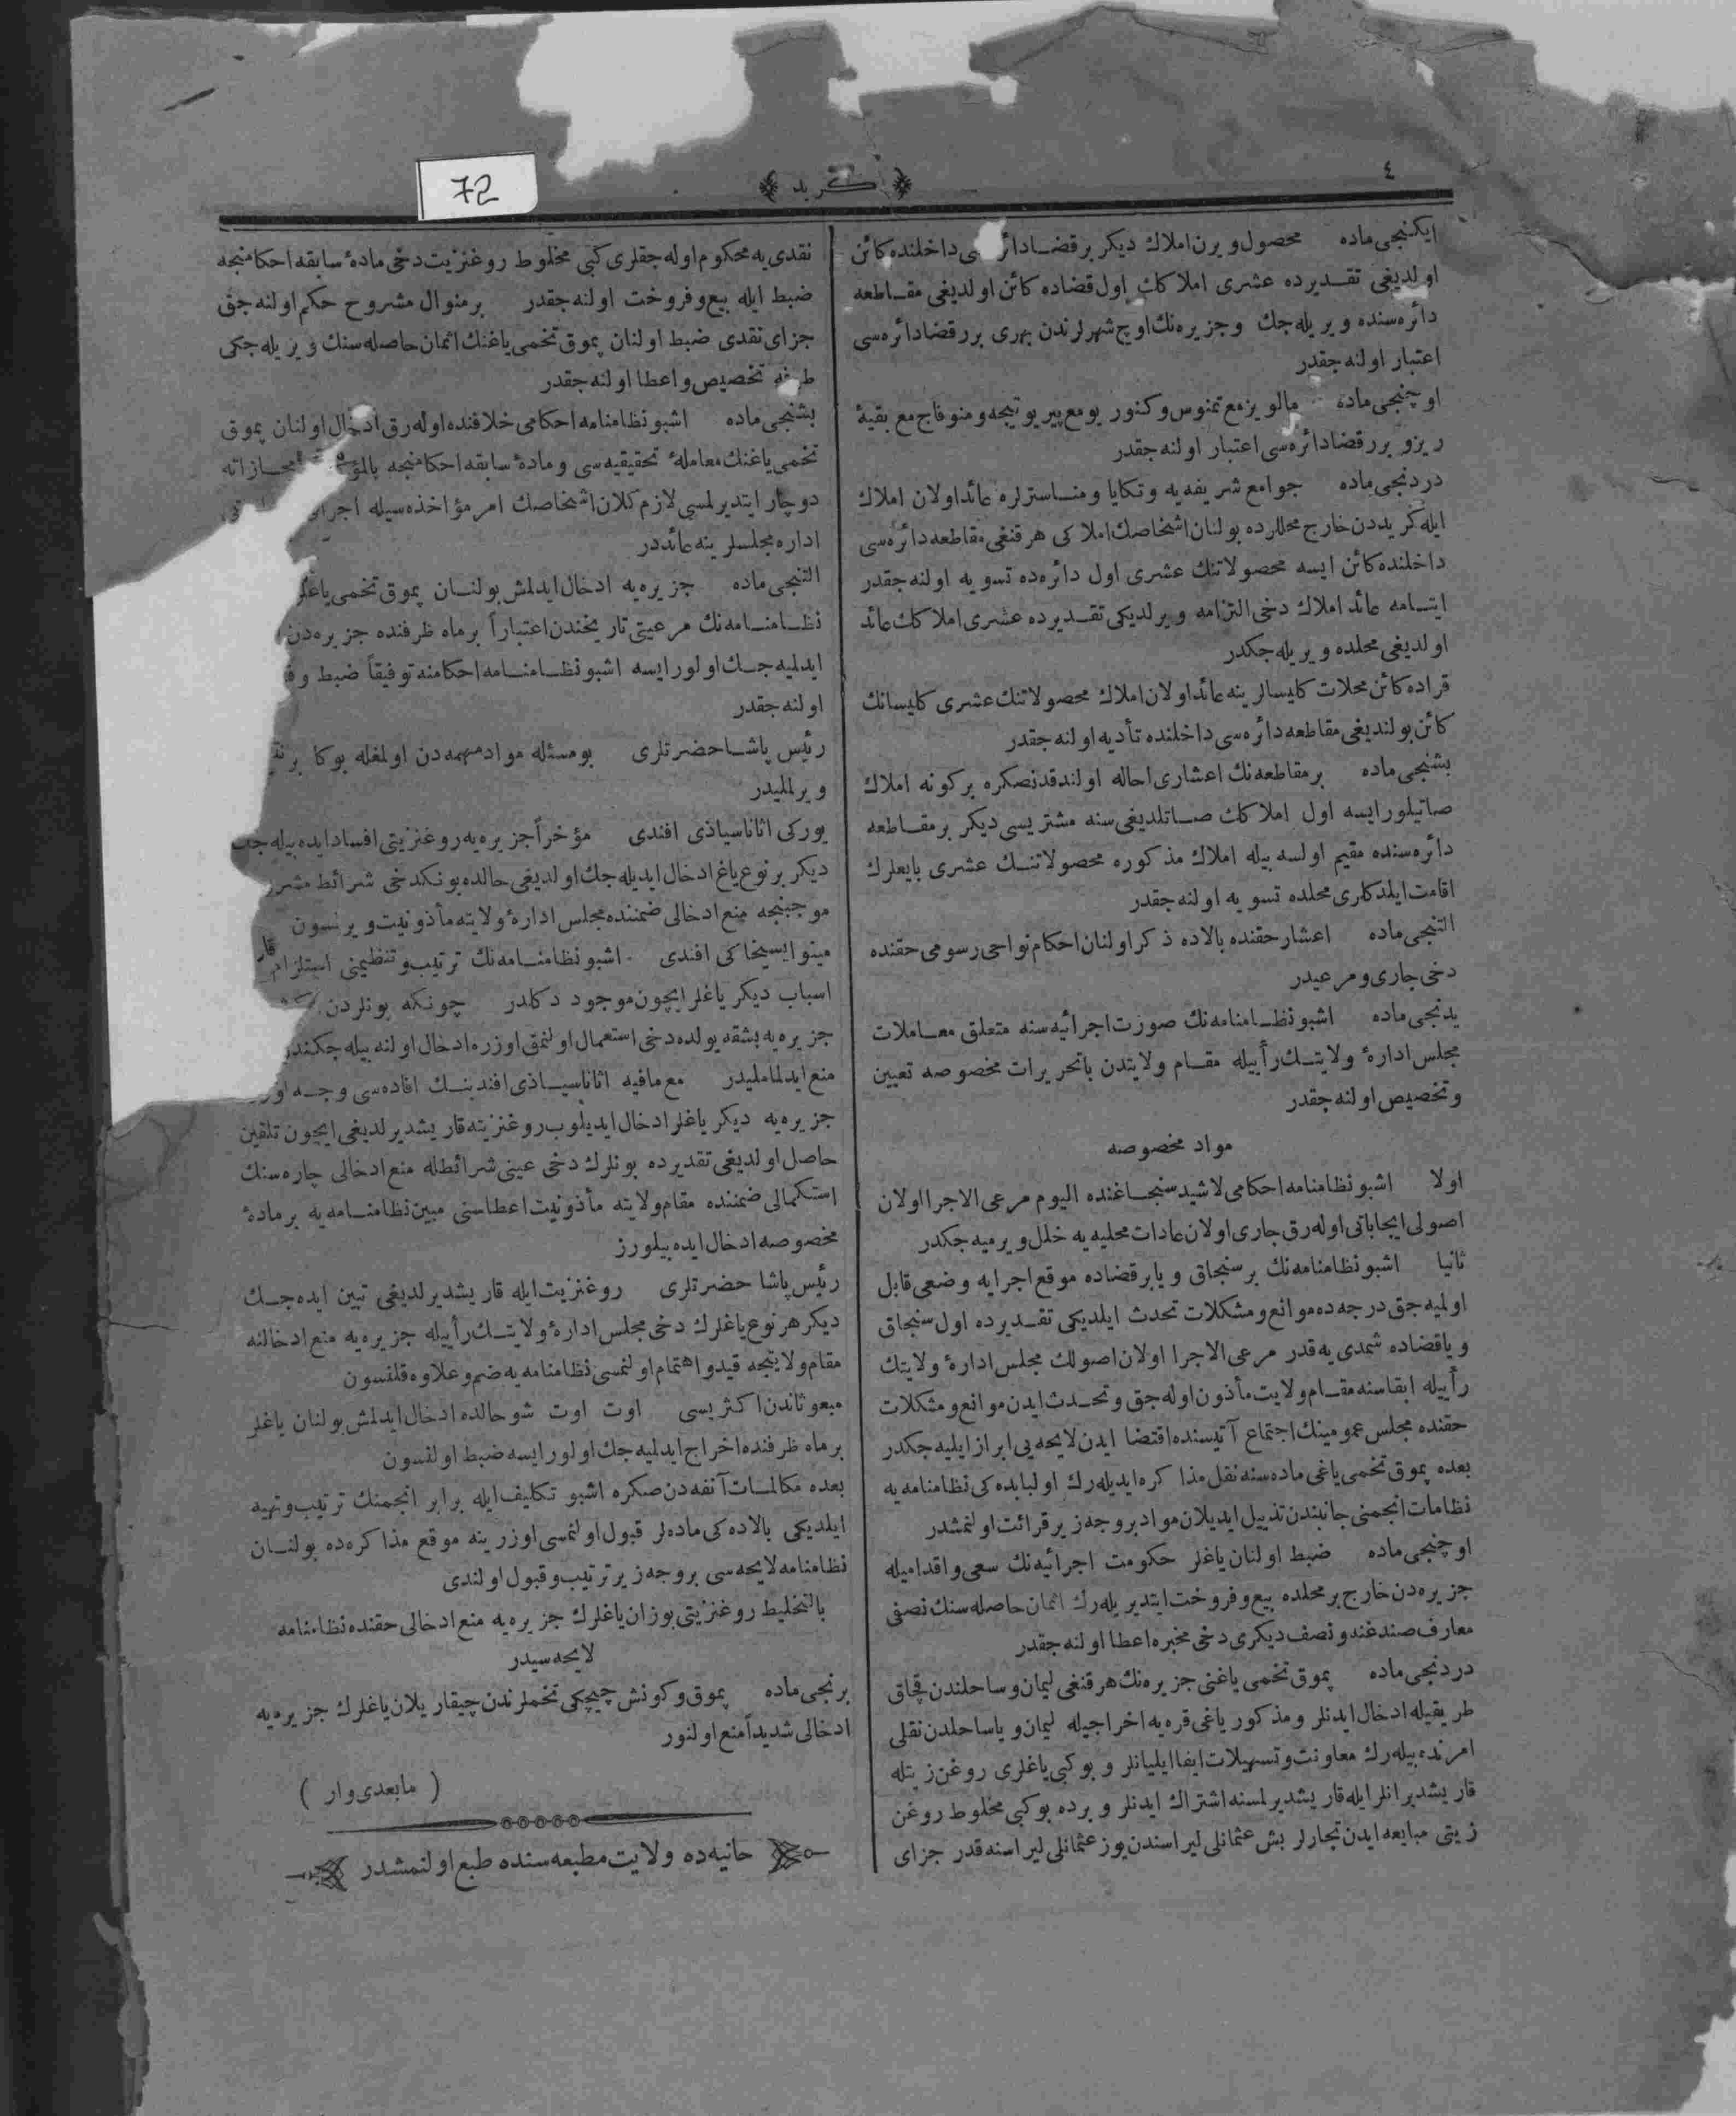 ٤
كريد
72
ايكنجى ماده محصول ويرن املاك ديكر بر قضا دائر ى داخلنده كائن
اولديغى تقديرده عشرى املاكك اول قضاده كائن اولديغى مقاطعه
دائره‌سنده ويريله‌جك وجزيره‌نك اوچ شهرلرندن بهرى برر قضا دائره‌سى
اعتبار اولنه‌جقدر
اوچنجى ماده مالويز مع تمنوس وكنور يو مع پير يوتيجه ومنوفاج مع بقيۀ
ريزو برر قضا دائره‌سى اعتبار اولنه‌جقدر
دردنجى ماده جوامع شريفه‌يه وتكايا ومناسترلره عائد اولان املاك
ايله كريددن خارج محللرده بولنان اشخاصك املاكى هر قنغى مقاطعه دائره‌سى
داخلنده كائن ايسه محصولاتنك عشرى اول دائره‌ده تسويه اولنه‌جقدر
ايتامه عائد املاك دخى التزامه ويرلديكى تقديرده عشرى املاكك عائد
اولديغى محلده ويريله‌جكدر
قراده كائن محلات كليسالرينه عائد اولان املاك محصولاتنك عشرى كليسانك
كائن بولنديغى مقاطعه دائره‌سى داخلنده تأديه اولنه‌جقدر
بشنجى ماده بر مقاطعه‌نك اعشارى احاله اولندقدنصكره بر كونه املاك
صاتيلور ايسه اول املاكك صاتلديغى سنه مشتريسى ديكر بر مقاطعه
دائره‌سنده مقيم اولسه بيله املاك مذكوره محصولاتنك عشرى بايعلرك
اقامت ايلدكلرى محلده تسويه اولنه‌جقدر
التنجى ماده اعشار حقنده بالاده ذكر اولنان احكام نواحى رسومى حقنده
دخى جارى ومرعيدر
يدنجى ماده اشبو نظامنامه‌نك صورت اجرائيه‌سنه متعلق معاملات
مجلس ادارۀ ولايتك رأييله مقام ولايتدن باتحريرات مخصوصه تعيين
وتخصيص اولنه‌جقدر
مواد مخصوصه
اولا اشبو نظامنامه احكامى لاشيد سنجاغنده اليوم مرعى الاجرا اولان
اصولى ايجاباتى اوله‌رق جارى اولان عادات محليه‌يه خلل ويرميه‌جكدر
ثانيا اشبو نظامنامه‌نك بر سنجاق ويا بر قضاده موقع اجرايه وضعى قابل
اولميه‌جق درجه‌ده موانع ومشكلات تحدث ايلديكى تقديرده اول سنجاق
ويا قضاده شمدى‌يه قدر مرعى الاجرا اولان اصولك مجلس ادارۀ ولايتك
رأييله ابقاسنه مقام ولايت مأذون اوله‌جق وتحدث ايدن موانع ومشكلات
حقنده مجلس عمومينك اجتماع آتيسنده اقتضا ايدن لايحه‌يى ابراز ايليه‌جكدر
بعده پموق تخمى ياغى ماده‌سنه نقل مذاكره ايديله‌رك اولبابده‌كى نظامنامه‌يه
نظامات انجمنى جانبندن تذييل ايديلان مواد بروجه زير قرائت اولنمشدر
اوچنجى ماده ضبط اولنان ياغلر حكومت اجرائيه‌نك سعى واقداميله
جزيره‌دن خارج بر محلده بيع وفروخت ايتديريله‌رك اثمان حاصله‌سنك نصفى
معارف صندغنه ونصف ديكرى دخى مخبره اعطا اولنه‌جقدر
دردنجى ماده پموق تخمى ياغنى جزيره‌نك هر قنغى ليمان وساحلندن قچاق
طريقيله ادخال ايدنلر ومذكور ياغى قره‌يه اخراجيله ليمان ويا ساحلدن نقلى
امرنده بيله‌رك معاونت وتسهيلات ايفا ايليانلر وبوكبى ياغلرى روغن زيتله
قاريشديرانلر ايله قاريشديرلمسنه اشتراك ايدنلر وبرده بوكبى مخلوط روغن
زيتى مبايعه ايدن تجارلر بش عثمانلى ليراسندن يوز عثمانلى ليراسنه قدر جزاى
نقدى‌يه محكوم اوله‌جقلرى كبى مخلوط روغنزيت دخى مادۀ سابقه احكامنجه
ضبط ايله بيع وفروخت اولنه‌جقدر برمنوال مشروح حكم اولنه‌جق
جزاى نقدى ضبط اولنان پموق تخمى ياغنك اثمان حاصله‌سنك ويريله‌جكى
طرفه تخصيص واعطا اولنه‌جقدر
بشنجى ماده اشبو نظامنامه احكامى خلافنده اوله‌رق ادخال اولنان پموق
تخمى ياغنك معاملۀ تحقيقيه‌سى ومادۀ سابقه احكامنجه مجازاته
دوچار ايتديرلمسى لازم كلان اشخاصك امر مؤاخذه‌سيله
اداره مجلسلرينه عائددر
التنجى ماده جزيره‌يه ادخال ايدلمش بولنان پموق تخمى
نظامنامه‌نك مرعيتى تاريخندن اعتباراً بر ماه ظرفنده جزيره‌دن
ايدلميه‌جك اولور ايسه اشبو نظامنامه احكامنه توفيقاً ضبط
اولنه‌جقدر
رئيس پاشا حضرتلرى بو مسئله مواد مهمه‌دن اولمغله بوكا
ويرلمليدر
يوركى اثاناسياذى افندى مؤخراً جزيره‌يه روغنزيتى افساد ايده‌بيله‌جك
ديكر بر نوع ياغ ادخال ايديله‌جك اولديغى حالده بونكدخى شرائط
موجبنجه منع ادخالى ضمننده مجلس ادارۀ ولايته مأذونيت ويرلسون
مينوا ايسيخاكى افندى اشبو نظامنامه‌نك ترتيب وتنظيمنى
اسباب ديكر ياغلر ايچون موجود دكلدر چونكه بونلردن
جزيره‌يه بشقه يولده دخى استعمال اولنمق اوزره ادخال اولنه‌بيله‌جكندن
منع ايدلماملیدر مع مافيه اثاناسياذى افندينك افاده‌سى وجه
جزيره‌يه ديكر ياغلر ادخال ايديلوب روغنزيته قاريشديرلديغى ايچون تلقين
حاصل اولديغى تقديرده بونلرك دخى عينى شرائطله منع ادخالى چاره‌سنك
استكمالى ضمننده مقام ولايته مأذونيت اعطاسنى مبين نظامنامه‌يه بر مادۀ
مخصوصه ادخال ايده‌بيلورز
رئيس پاشا حضرتلرى روغنزيت ايله قاريشديرلديغى تبين ايده‌جك
ديكر هر نوع ياغلرك دخى مجلس ادارۀ ولايتك رأييله جزيره‌يه منع ادخالنه
مقام ولايتجه قيد واهتمام اولنمسى نظامنامه‌يه ضم وعلاوه قلنسون
مبعوثاندن اكثريسى اوت اوت شو حالده ادخال ايدلمش بولنان ياغلر
بر ماه ظرفنده اخراج ايدلميه‌جك اولور ايسه ضبط اولنسون
بعده مكالمات آنفه‌دن صكره اشبو تكليف ايله برابر انجمنك ترتيب وتهيه
ايلديكى بالاده‌كى ماده‌لر قبول اولنمسى اوزرينه موقع مذاكره‌ده بولنان
نظامنامه لايحه‌سى بروجه زير ترتيب وقبول اولندى
بالتخليط روغنزيتى بوزان ياغلرك جزيره‌يه منع ادخالى حقنده نظامنامه
لايحه‌سيدر
برنجى ماده پموق وكونش چيچكى تخملرندن چيقاريلان ياغلرك جزيره‌يه
ادخالى شديداً منع اولنور
( مابعدى وار )
حانيه‌ده ولايت مطبعه‌سنده طبع اولنمشدر